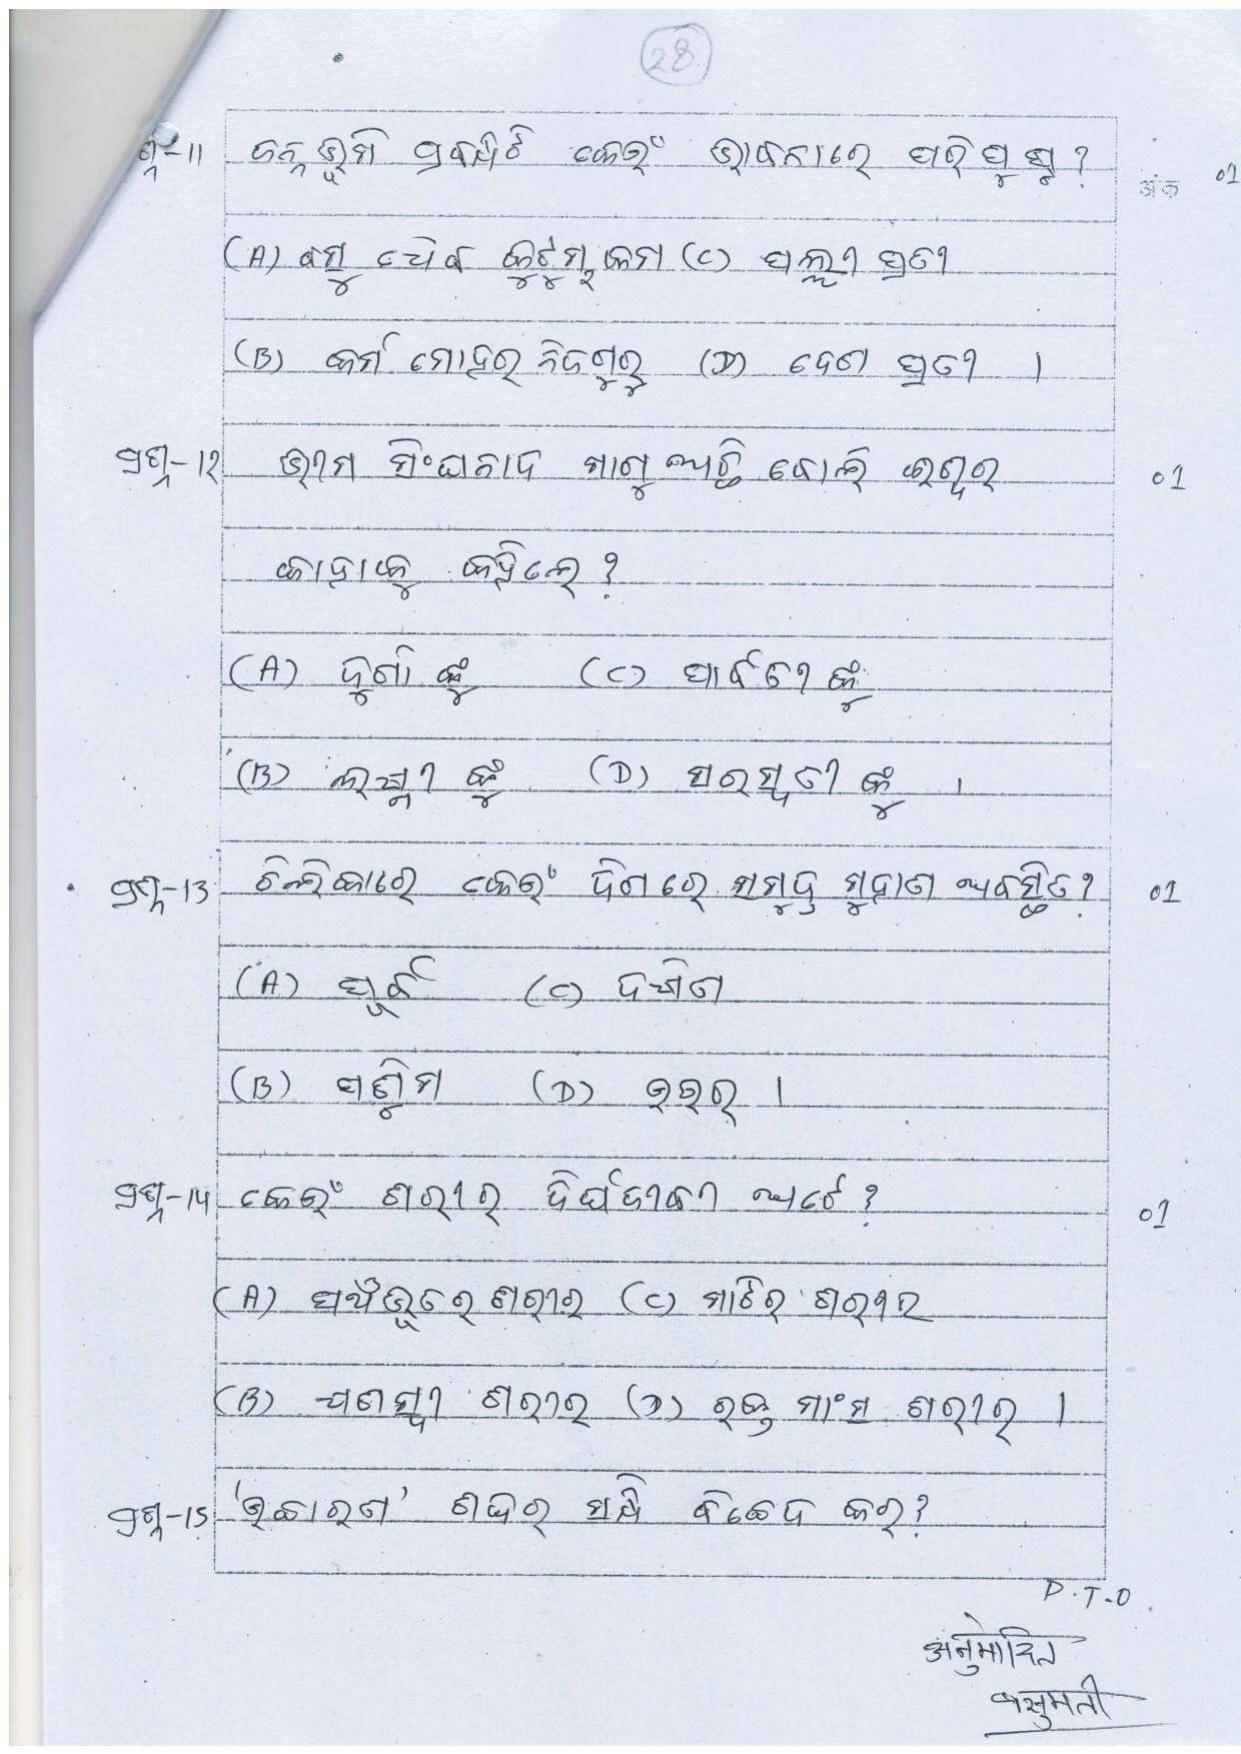 28
ପ୍ରଶ୍ନ-11 ଜନ୍ମଭୂମି ପ୍ରବନ୍ଧଟି କେଉଁ ଭାବନାରେ ପରିପୁଷ୍ଟ? अंक 01
(A) ବସୁଧୈବ କୁଟୁମ୍ବକମ (C) ପଲ୍ଲୀ ପ୍ରୀତି
(B) କର୍ମ ମୋହର ନିଜଶୁରୁ (D) ଦେଶ ପ୍ରତୀ ।
ପ୍ରଶ୍ନ-12 ଭୀମ ସିଂଘନାଦ ମାଣୁଅଛି ବୋଲି ଇଶ୍ୱର 01
କାହାକୁ କହିଲେ?
(A) ଦୁର୍ଗାଙ୍କୁ (C) ପାର୍ବତୀଙ୍କୁ
(B) ଲକ୍ଷ୍ମୀଙ୍କୁ (D) ସରସ୍ୱତୀଙ୍କୁ ।
ପ୍ରଶ୍ନ-13 ଚିଲିକାରେ କେଉଁ ଦିଗରେ ସମୁଦ୍ର ମୁହାଣ ଅବସ୍ଥିତ? 01
(A) ପୂର୍ବ (C) ଦକ୍ଷିଣ
(B) ପଶ୍ଚିମ (D) ଉତ୍ତର ।
ପ୍ରଶ୍ନ-14 କେଉଁ ଶରୀର ଦିର୍ଘଜୀବୀ ଅଟେ? 01
(A) ପଞ୍ଚଭୂତରେ ଶରୀର (C) ମାଟିର ଶରୀର
(B) ଯଶସ୍ୱୀ ଶରୀର (D) ରକ୍ତ ମାଂସ ଶରୀର ।
ପ୍ରଶ୍ନ-15 'ଉଚ୍ଚାରଣ' ଶବ୍ଦର ସନ୍ଧି ବିଚ୍ଛେଦ କର?
P.T.O
अनुमोदित
वसुमती